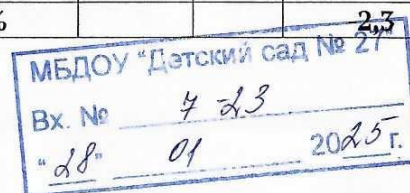 % 2,3
МБДОУ "Детский сад № 27"
Вх. № 7-23
"28" 01 2025 г.